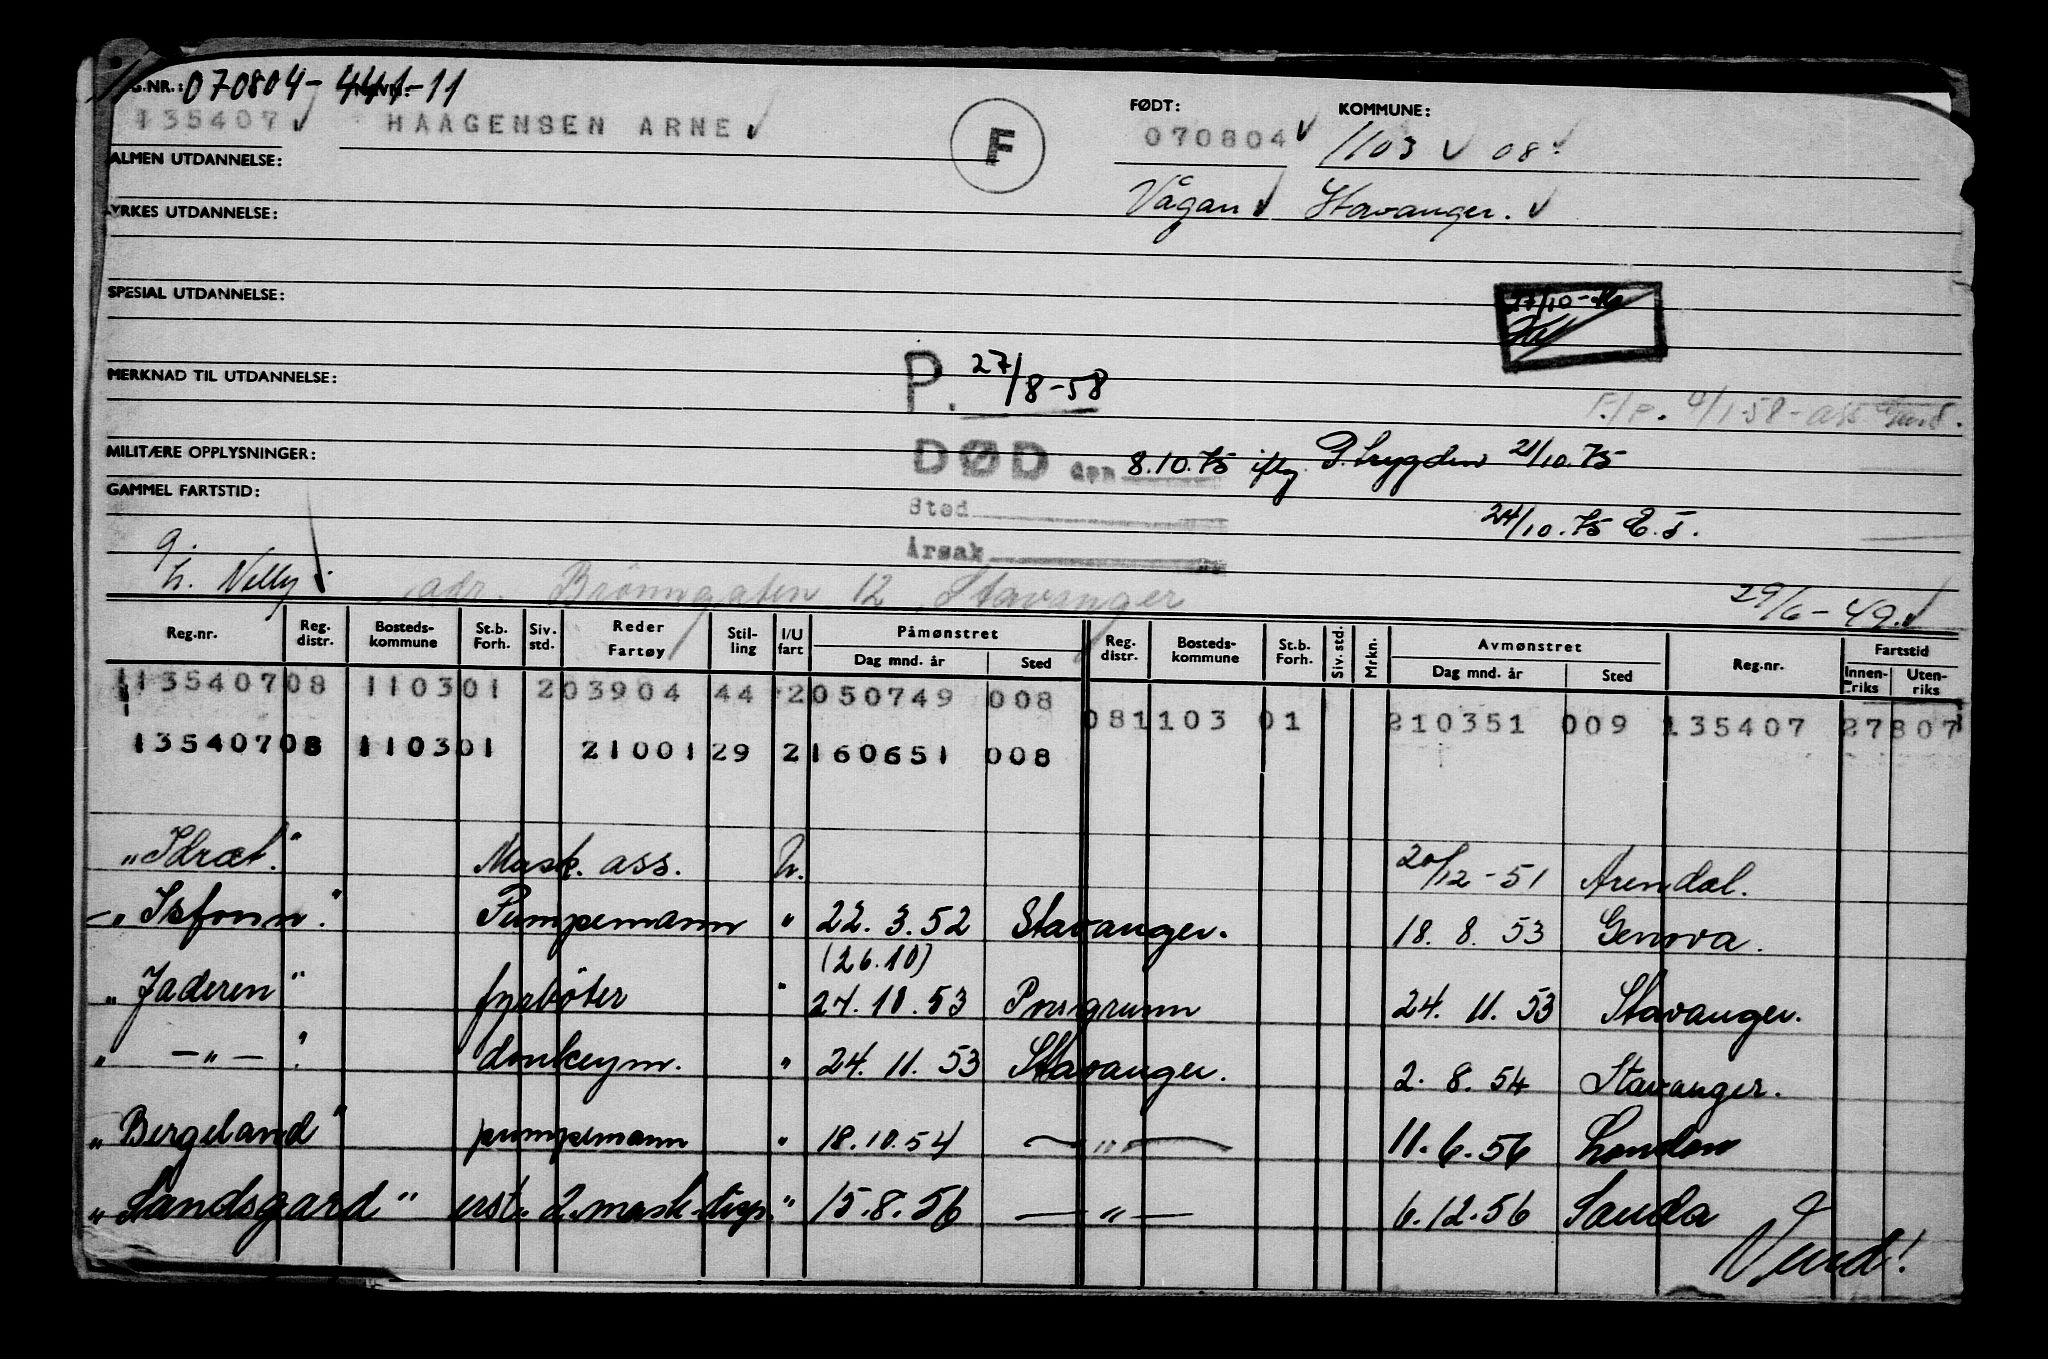 G.NR.: 070804-441-11
135407 HAAGENSEN ARNE F FØDT: KOMMUNE:
070804 1103 08
ALMEN UTDANNELSE:
Vågan Stavanger.
YRKES UTDANNELSE:
SPESIAL UTDANNELSE:
27/10-
P. 27/8-58
MERKNAD TIL UTDANNELSE:
F./P. 1-58-ass
MILITÆRE OPPLYSNINGER:
DØD den 8.10.75 iflg. P.trygden 21/10.75
GAMMEL FARTSTID:
Sted
24/10.75 E.S.
Årsak
g.
h. Nelly adr. Brönngaten 12, Stavanger 29/6-49.
Reg.nr. Reg. distr. Bosteds-kommune St.b. Forh. Siv. std. Reder Fartøy Stil-ling I/U fart Påmønstret Dag mnd. år Sted Reg. distr. Bosteds-kommune St.b. Forh. Siv. std. Mrkn. Avmønstret Dag mnd. år Sted Reg.nr. Fartstid Innen-riks Uten-riks
135407 08 1103 01 2 03904 44 2 050749 008 08 1103 01 210351 009 135407 27 807
135407 08 1103 01 21001 29 2 160651 008
"Idræt." Mask. ass. U. 20/12-51 Arendal.
-"Isfonn." Pumpemann " 22.3.52 Stavanger. 18.8.53 Genova.
(26.10)
"Jaderen" fyrböter " 24.10.53 Porsgrunn 24.11.53 Stavanger.
" -"- " donkeym. " 24.11.53 Stavanger. 2.8.54 Stavanger.
"Bergeland" pumpemann " 18.10.54 -"- 11.6.56 London
"Sandsgard" erst. 2. mask.disp. " 15.8.56 -"- 6.12.56 Sauda
Vend!